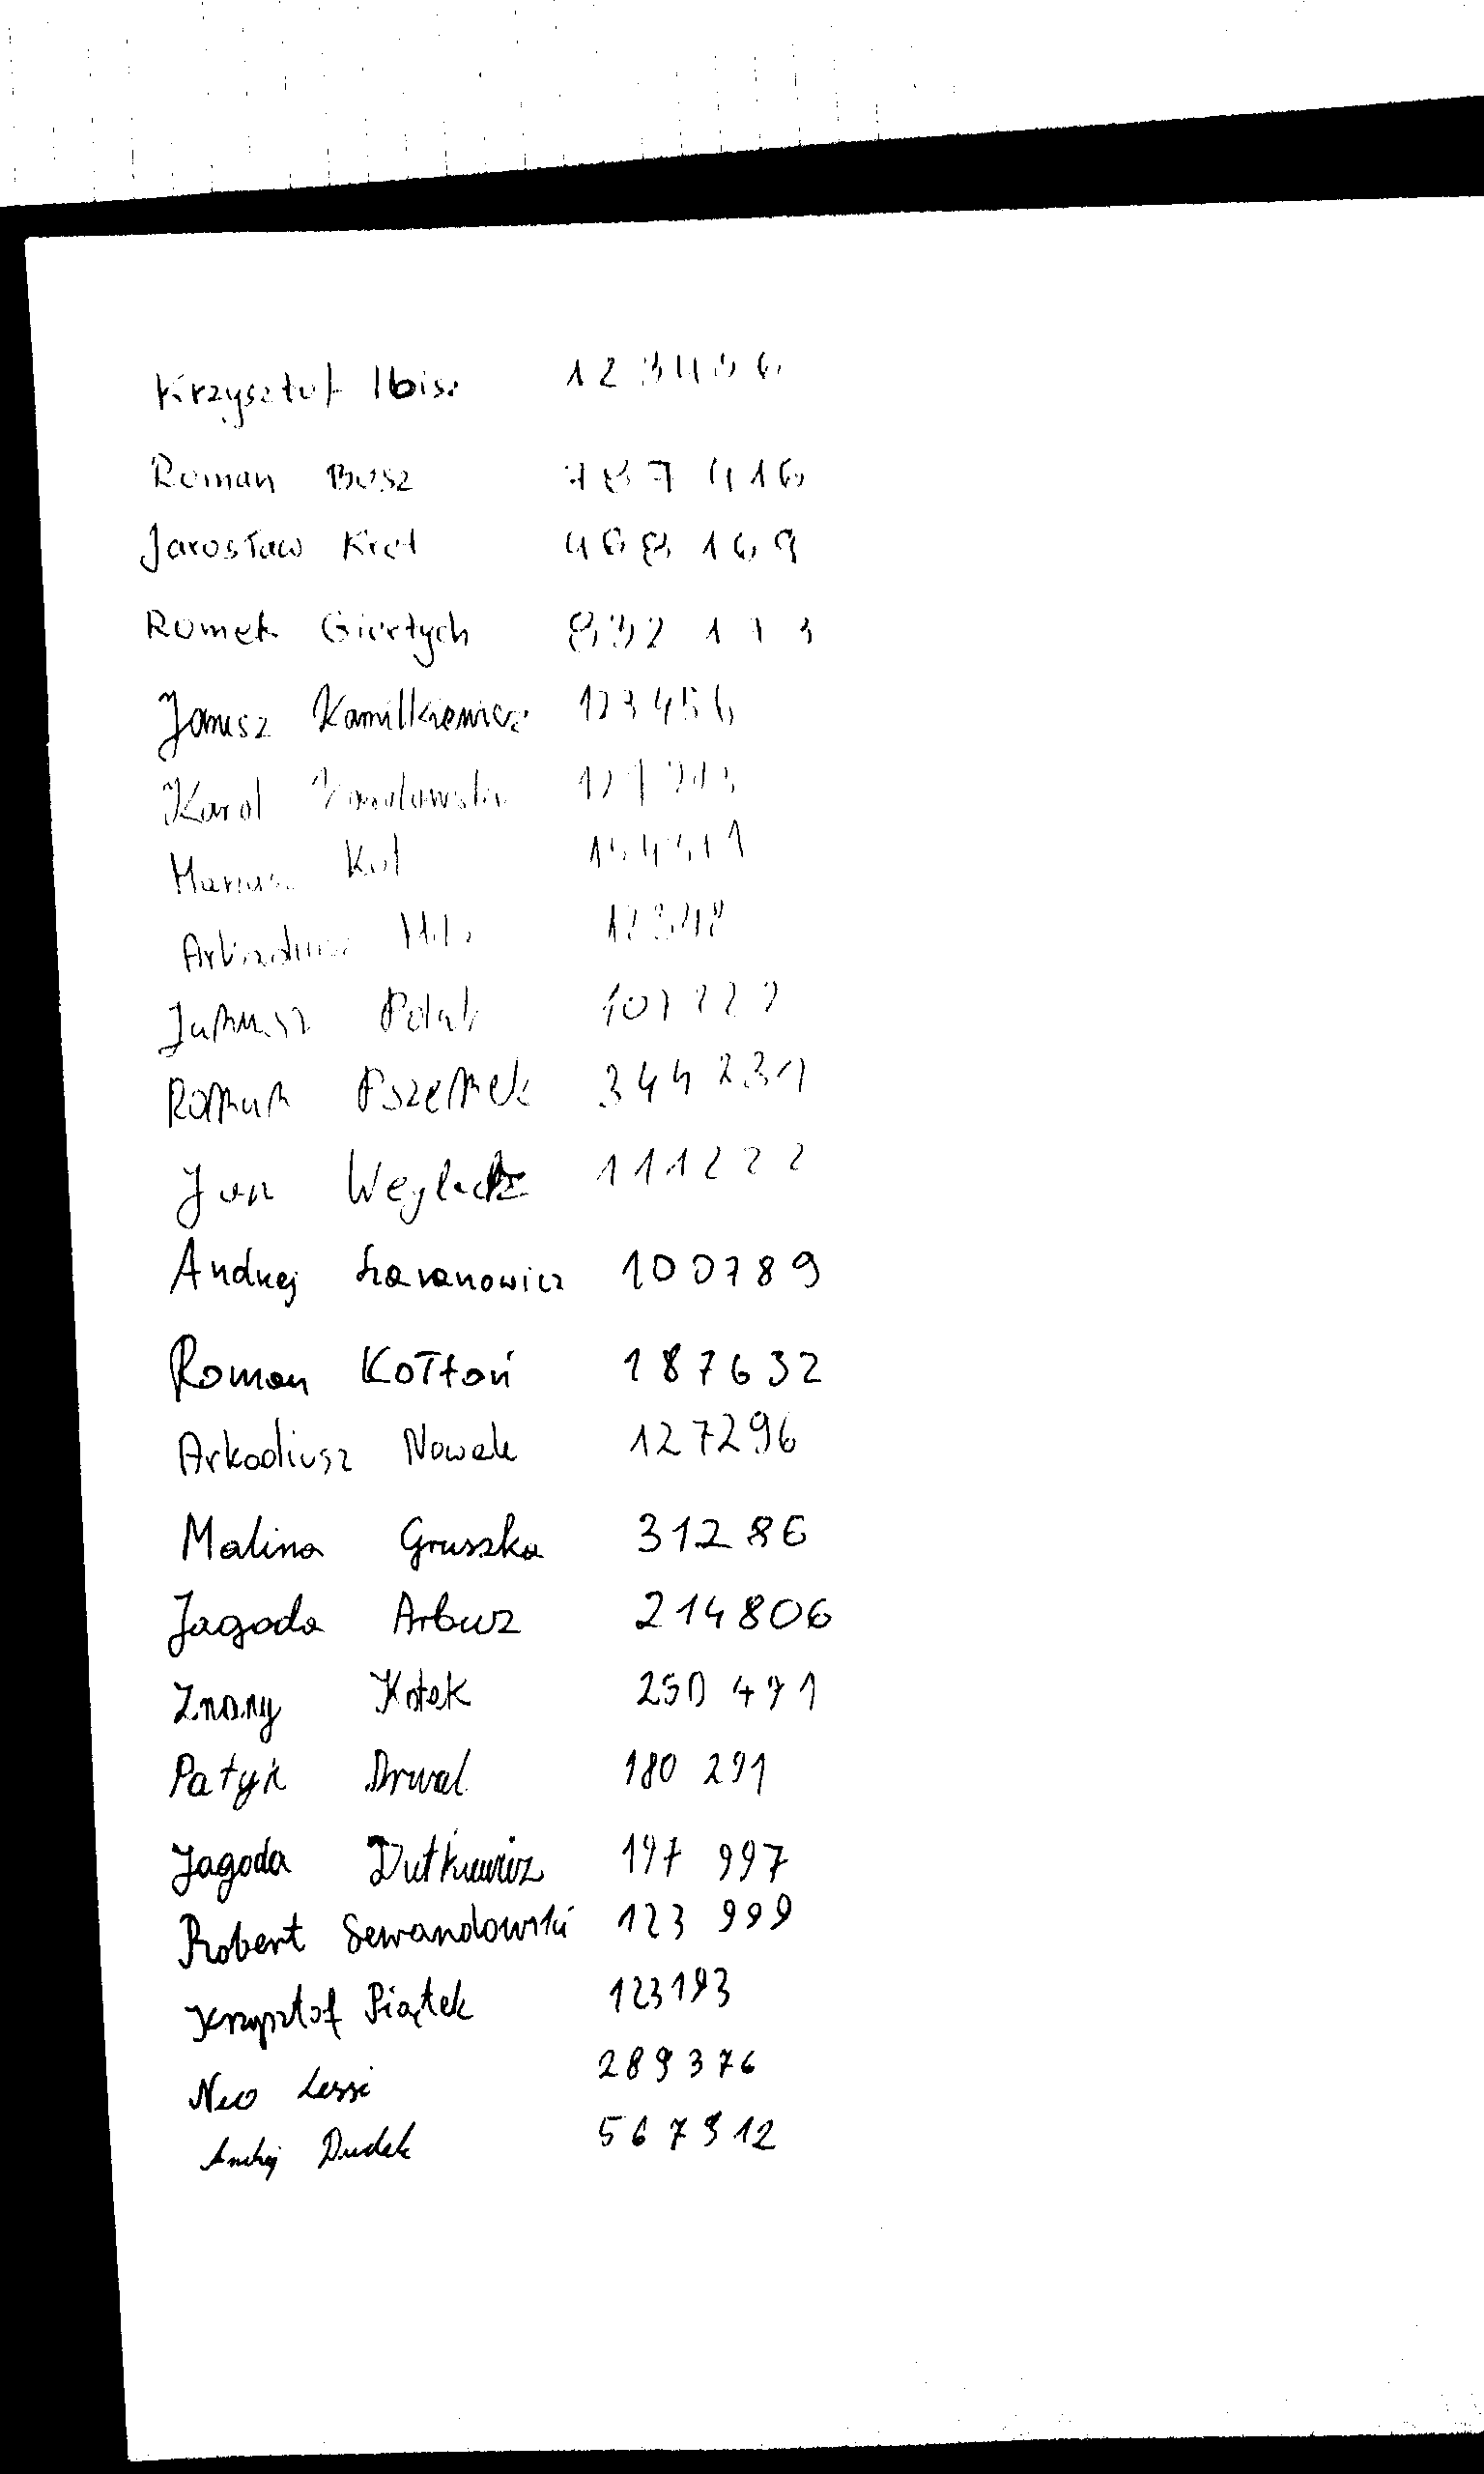 Krzysztof Ibisz 123456
Roman Bosz 787416
Jarosław Kret 468169
Romek Giertych 832173
Janusz Kamilkiewicz 123456
Karol
Mariusz Kot
Arkadiusz
Janusz Polak
Roman Pszemek 344231
Jan 111222
Andrzej Szaranowicz 100789
Roman Kołtoń 187632
Arkadiusz Nowak 127296
Malina Gruszka 31286
Jagoda Arbuz 214806
Znany Kotek 250 471
Patyk Drwal 180 291
Jagoda Dutkiewicz 197 997
Robert Lewandowski 123 999
Krzysztof Piątek 123193
Neo Lessi 289376
Andrzej Dudek 567912